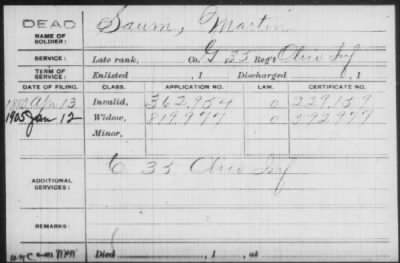 DEAD
NAME OF SOLDIER: Saum, Martin
SERVICE: Late rank, Co. G 33 Reg't Ohio Inf
TERM OF SERVICE: Enlisted , 1 Discharged , 1
DATE OF FILING. CLASS. APPLICATION NO. LAW. CERTIFICATE NO.
Apr 13 Invalid, 362.934 0 229.139
1905 Jan 12 Widow, 819.977 0 592977
Minor,
ADDITIONAL SERVICES: C 33 Ohio Inf
REMARKS:
Died , 1 , at